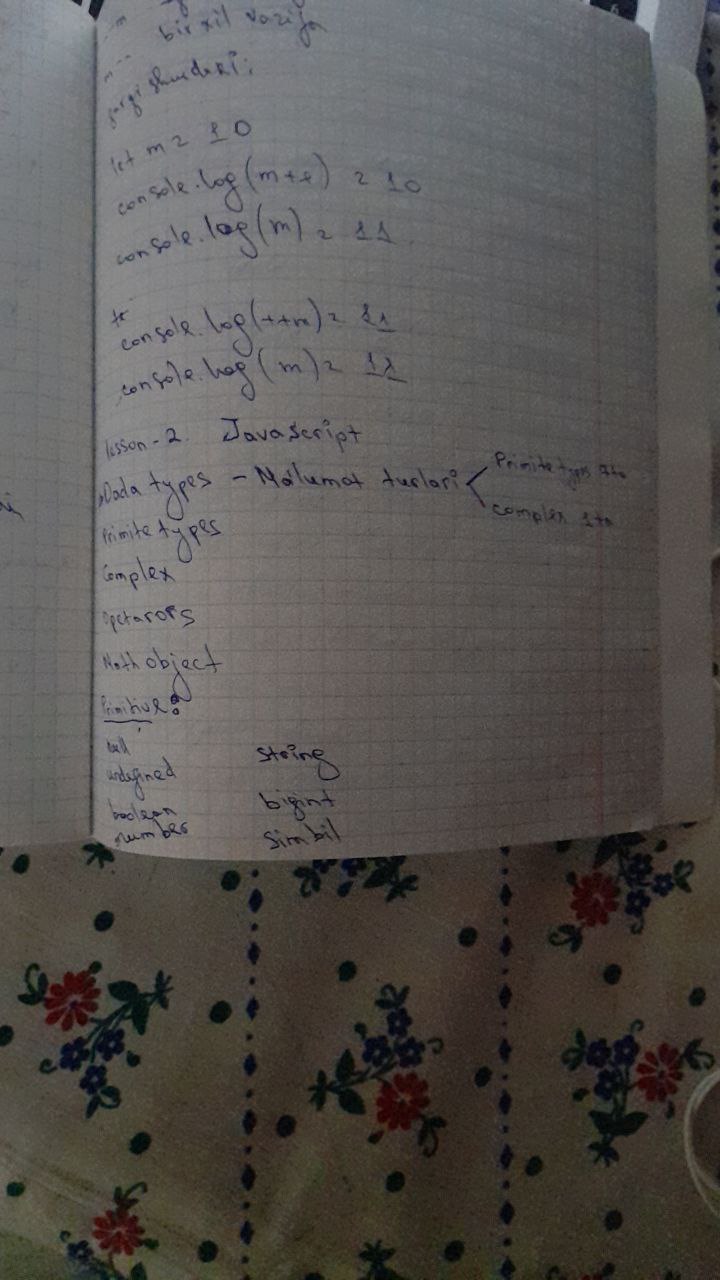 bir xil vazifa
farqi shundaki:
let m = 10
console.log(m++) = 10
console.log(m) = 11
console.log(++m) = 11
console.log(m) = 12
lesson-2. Javascript
Dada types - Ma'lumot turlari < Primite types 7ta
complex 1ta
Primite types
Complex
Opetarors
Math object
Primitive:
null
undefined string
boolean bigint
number simbil